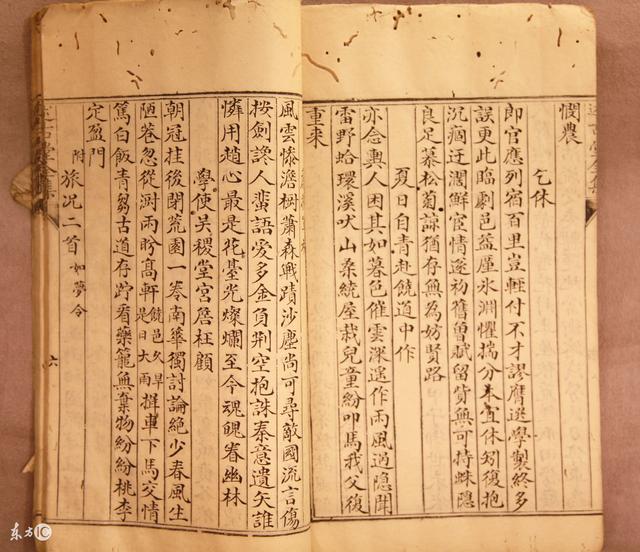 憫農
乞休
即官應列宿百里豈輕付不才謬膺選學製終多
誤更此臨劇邑益厪氷淵懼揣分本宜休矧復抱
沉痼迂濶鮮宦情遂初舊曾賦留貲無可持蛛隱
良足慕松菊諒猶存無為妨賢路
夏日自青赴饒道中作
亦念輿人困其如暮色催雲深遥作雨風過隱聞
雷野蛤環溪吠山桑統屋栽兒童紛叩馬我父復
重来
風雲慘澹樹蕭森戰蹟沙塵尚可尋敵國流言傷
按劍讒人蜚語愛多金負荆空抱誅秦意遺矢誰
憐用趙心最是花臺光燦爛至今魂餽眷幽林
學使吴稷堂宫詹枉顧
朝冠挂後閉荒園一卷南華獨討論絶少春風生
陋巷忽從澍雨盻髙軒饒邑久旱是日大雨攤車下馬交情
篤白飯青芻古道存跨看藥籠無棄物紛紛桃李
定盈門
附旅况二首如夢令
六
东方IC